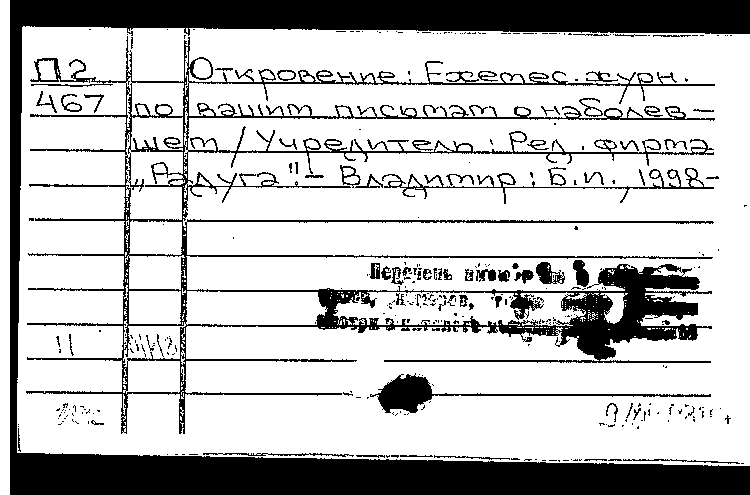 П2 Откровение: Ежемес. журн.
467 по вашим письмам о наболев-
шем / Учредитель: Ред. фирма
„Радуга".- Владимир: Б.и., 1998-
Перечень
номеров,
смотри в каталоге
11